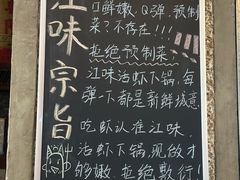 江味宗旨
口鲜嫩、Q弹、预制
菜?不存在!!!
拒绝预制菜!
江味活虾下锅,每
弹一下都是新鲜诚意
吃虾认准江味
活虾下锅,现做才
够嫩,拒绝敷衍!